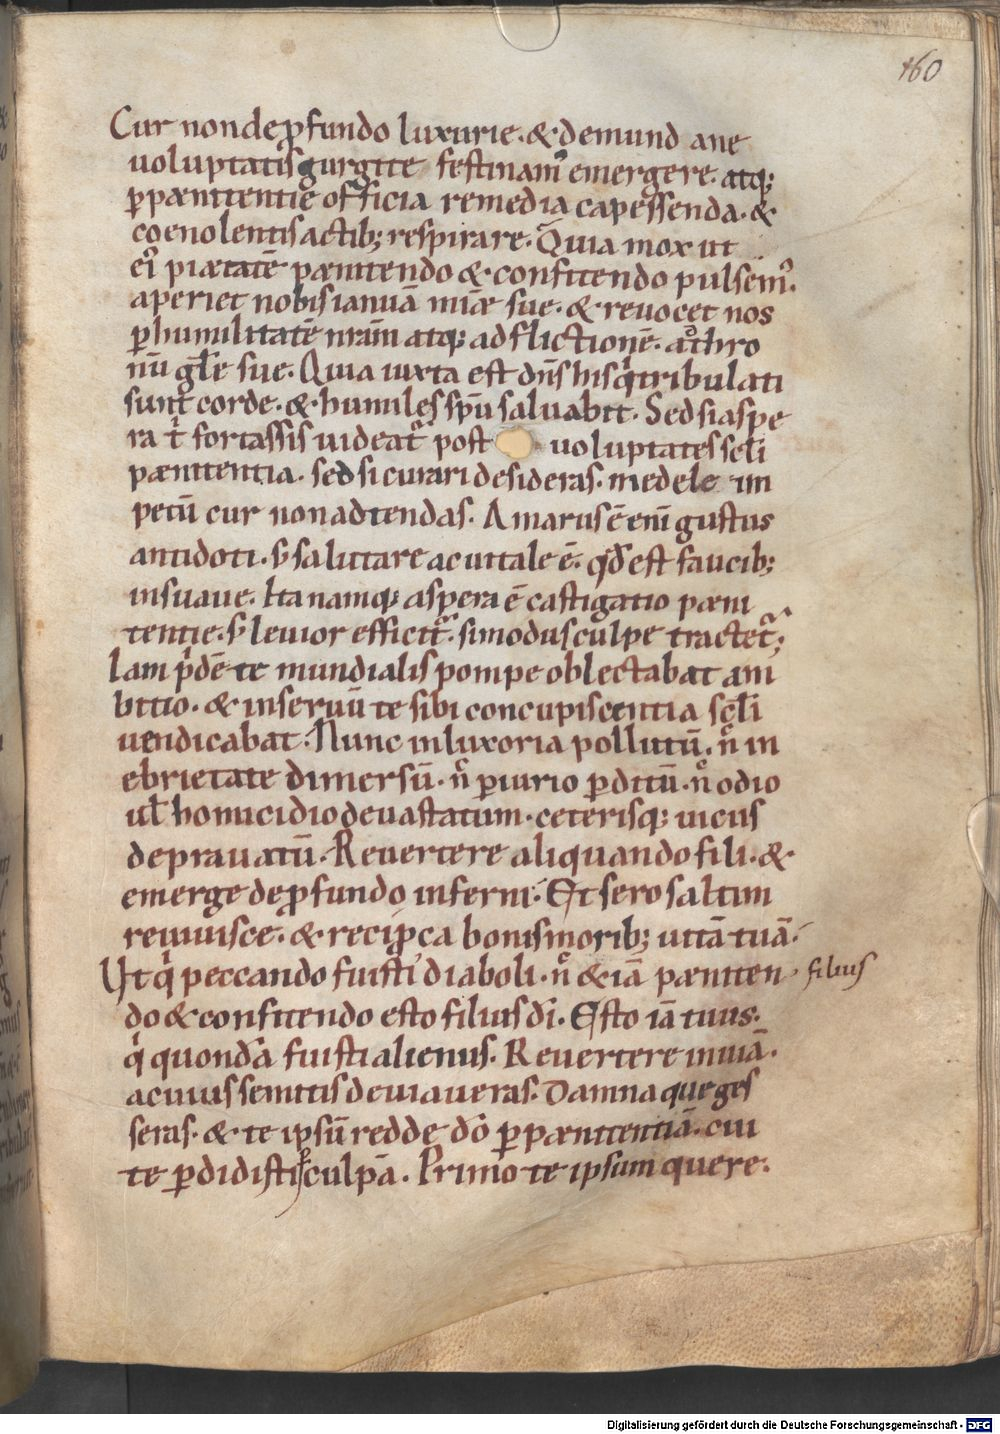 160
Cur non de ꝓfundo luxurie. & de mundane
uoluptatis gurgite festinamꝰ emergere. atq;
ꝑ pænitentie officia remedia capessenda. &
coenolentis actib; respirare. Quia mox ut
eiꝰ piætatē pænitendo & confitendo pulsemꝰ.
aperiet nobis ianuā miæ sue. & reuocet nos
ꝑ humilitatē nram atq; adflictionē. ad thro
nū gl̄e sue. Quia iuxta est dn̄s his qͥ tribulati
sunt corde. & humiles sp̄u saluabit. Sed si aspe
ra t̄ fortassis uideat᷑ post uoluptates scl̄i
pænitentia. sed si curari desideras. medele im
petū cur non adtendas. Amarus ē eni̅ gustus
antidoti. s; salutare ac uitale ē. qd̄ est faucib;
insuaue. Ita namq; aspera ē castigatio pæni
tentie. s; leuior efficit᷑. si modus culpe tractet᷑;
Iam pͥdē te mundialis pompe oblectabat am
bitio. & inseruū te sibi concupiscentia scl̄i
uendicabat. Nunc in luxoria pollutū. n̄ in
ebrietate dimersū. n̄ ꝑiurio ꝑditū. n̄ odio
ul̄ homicidio deuastatum. ceterisq; uicus
deprauatū. Reuertere aliquando fili. &
emerge de ꝓfundo inferni. Et sero saltim
reuiuisce. & recipͥca bonis morib; uitā tuā.
Ut qͥ peccando fuisti diaboli. n̄ & iā pæniten filius
do & confitendo esto filius dī. Esto iā tuus.
qͥ quondā fuisti alienus. Reuertere in uiā.
a cuius semitis deuiaueras. Damna que ges
seras. & te ipsū redde dō ꝑ pænitentiā. cui
te ꝑdidisti ꝑ culpā. Primo te ipsum quere.
Digitalisierung gefördert durch die Deutsche Forschungsgemeinschaft - DFG